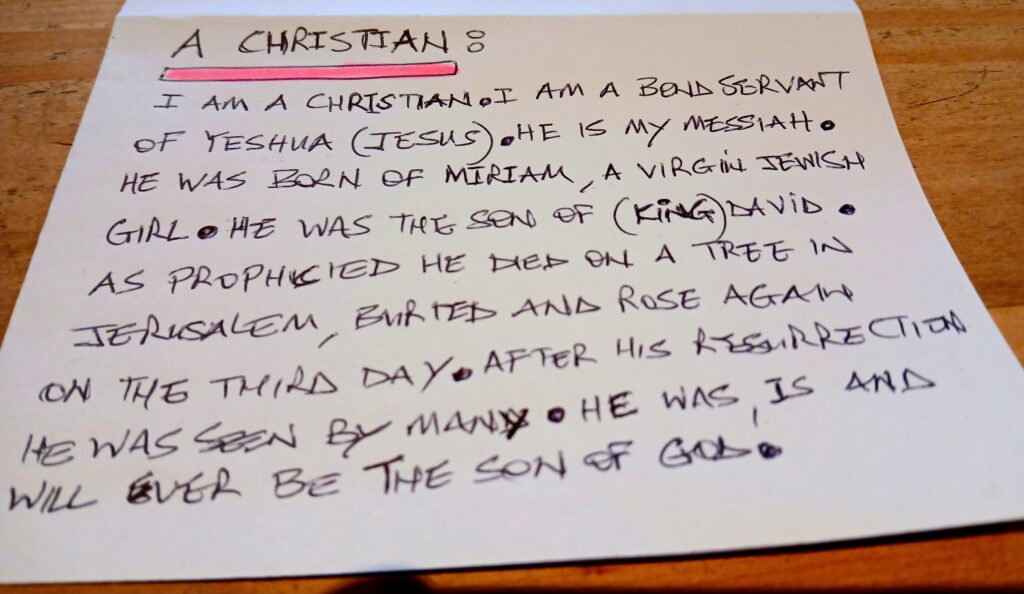 A CHRISTIAN:
I AM A CHRISTIAN. I AM A BOND SERVANT
OF YESHUA (JESUS). HE IS MY MESSIAH.
HE WAS BORN OF MIRIAM, A VIRGIN JEWISH
GIRL. HE WAS THE SON OF (KING) DAVID.
AS PROPHICIED HE DIED ON A TREE IN
JERUSALEM, BURIED AND ROSE AGAIN
ON THE THIRD DAY. AFTER HIS RESURRECTION
HE WAS SEEN BY MANY. HE WAS, IS AND
WILL EVER BE THE SON OF GOD.